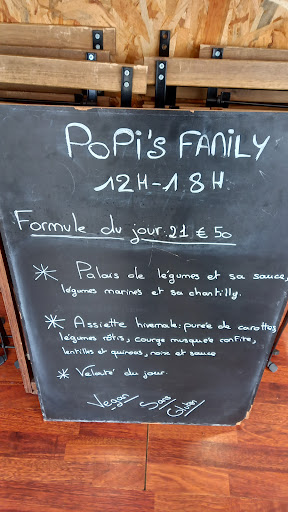 POPI'S FAMILY
12H-18H
Formule du jour: 21 € 50
* Palais de légumes et sa sauce,
légumes marinés et sa chantilly.
* Assiette hivernale: purée de carottes
légumes rôtis, courge musquée confite,
lentilles et quinoas, noix et sauce
* Velouté du jour.
Vegan / Sans / Gluten